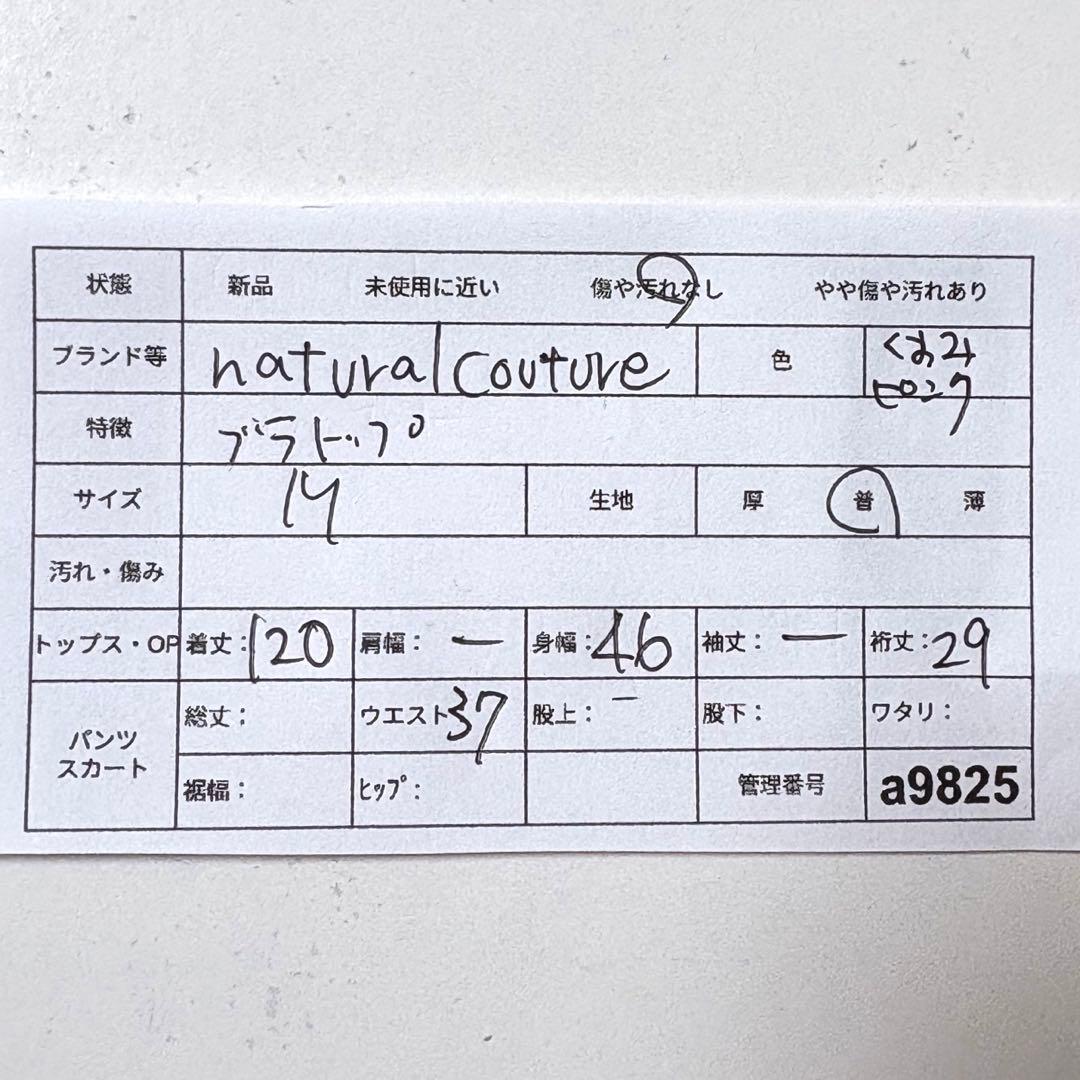 状態 新品 未使用に近い 傷や汚れなし やや傷や汚れあり
ブランド等 natural couture 色 くすみ
ピンク
特徴 ブラトップ
サイズ 生地 厚 普 薄
汚れ・傷み
トップス・OP 着丈：120 肩幅：ー 身幅：46 袖丈：ー 裄丈：29
パンツ
スカート
総丈； ウエスト37 股上：ー 股下： ワタリ：
裾幅： ﾋｯﾌﾟ： 管理番号 a9825